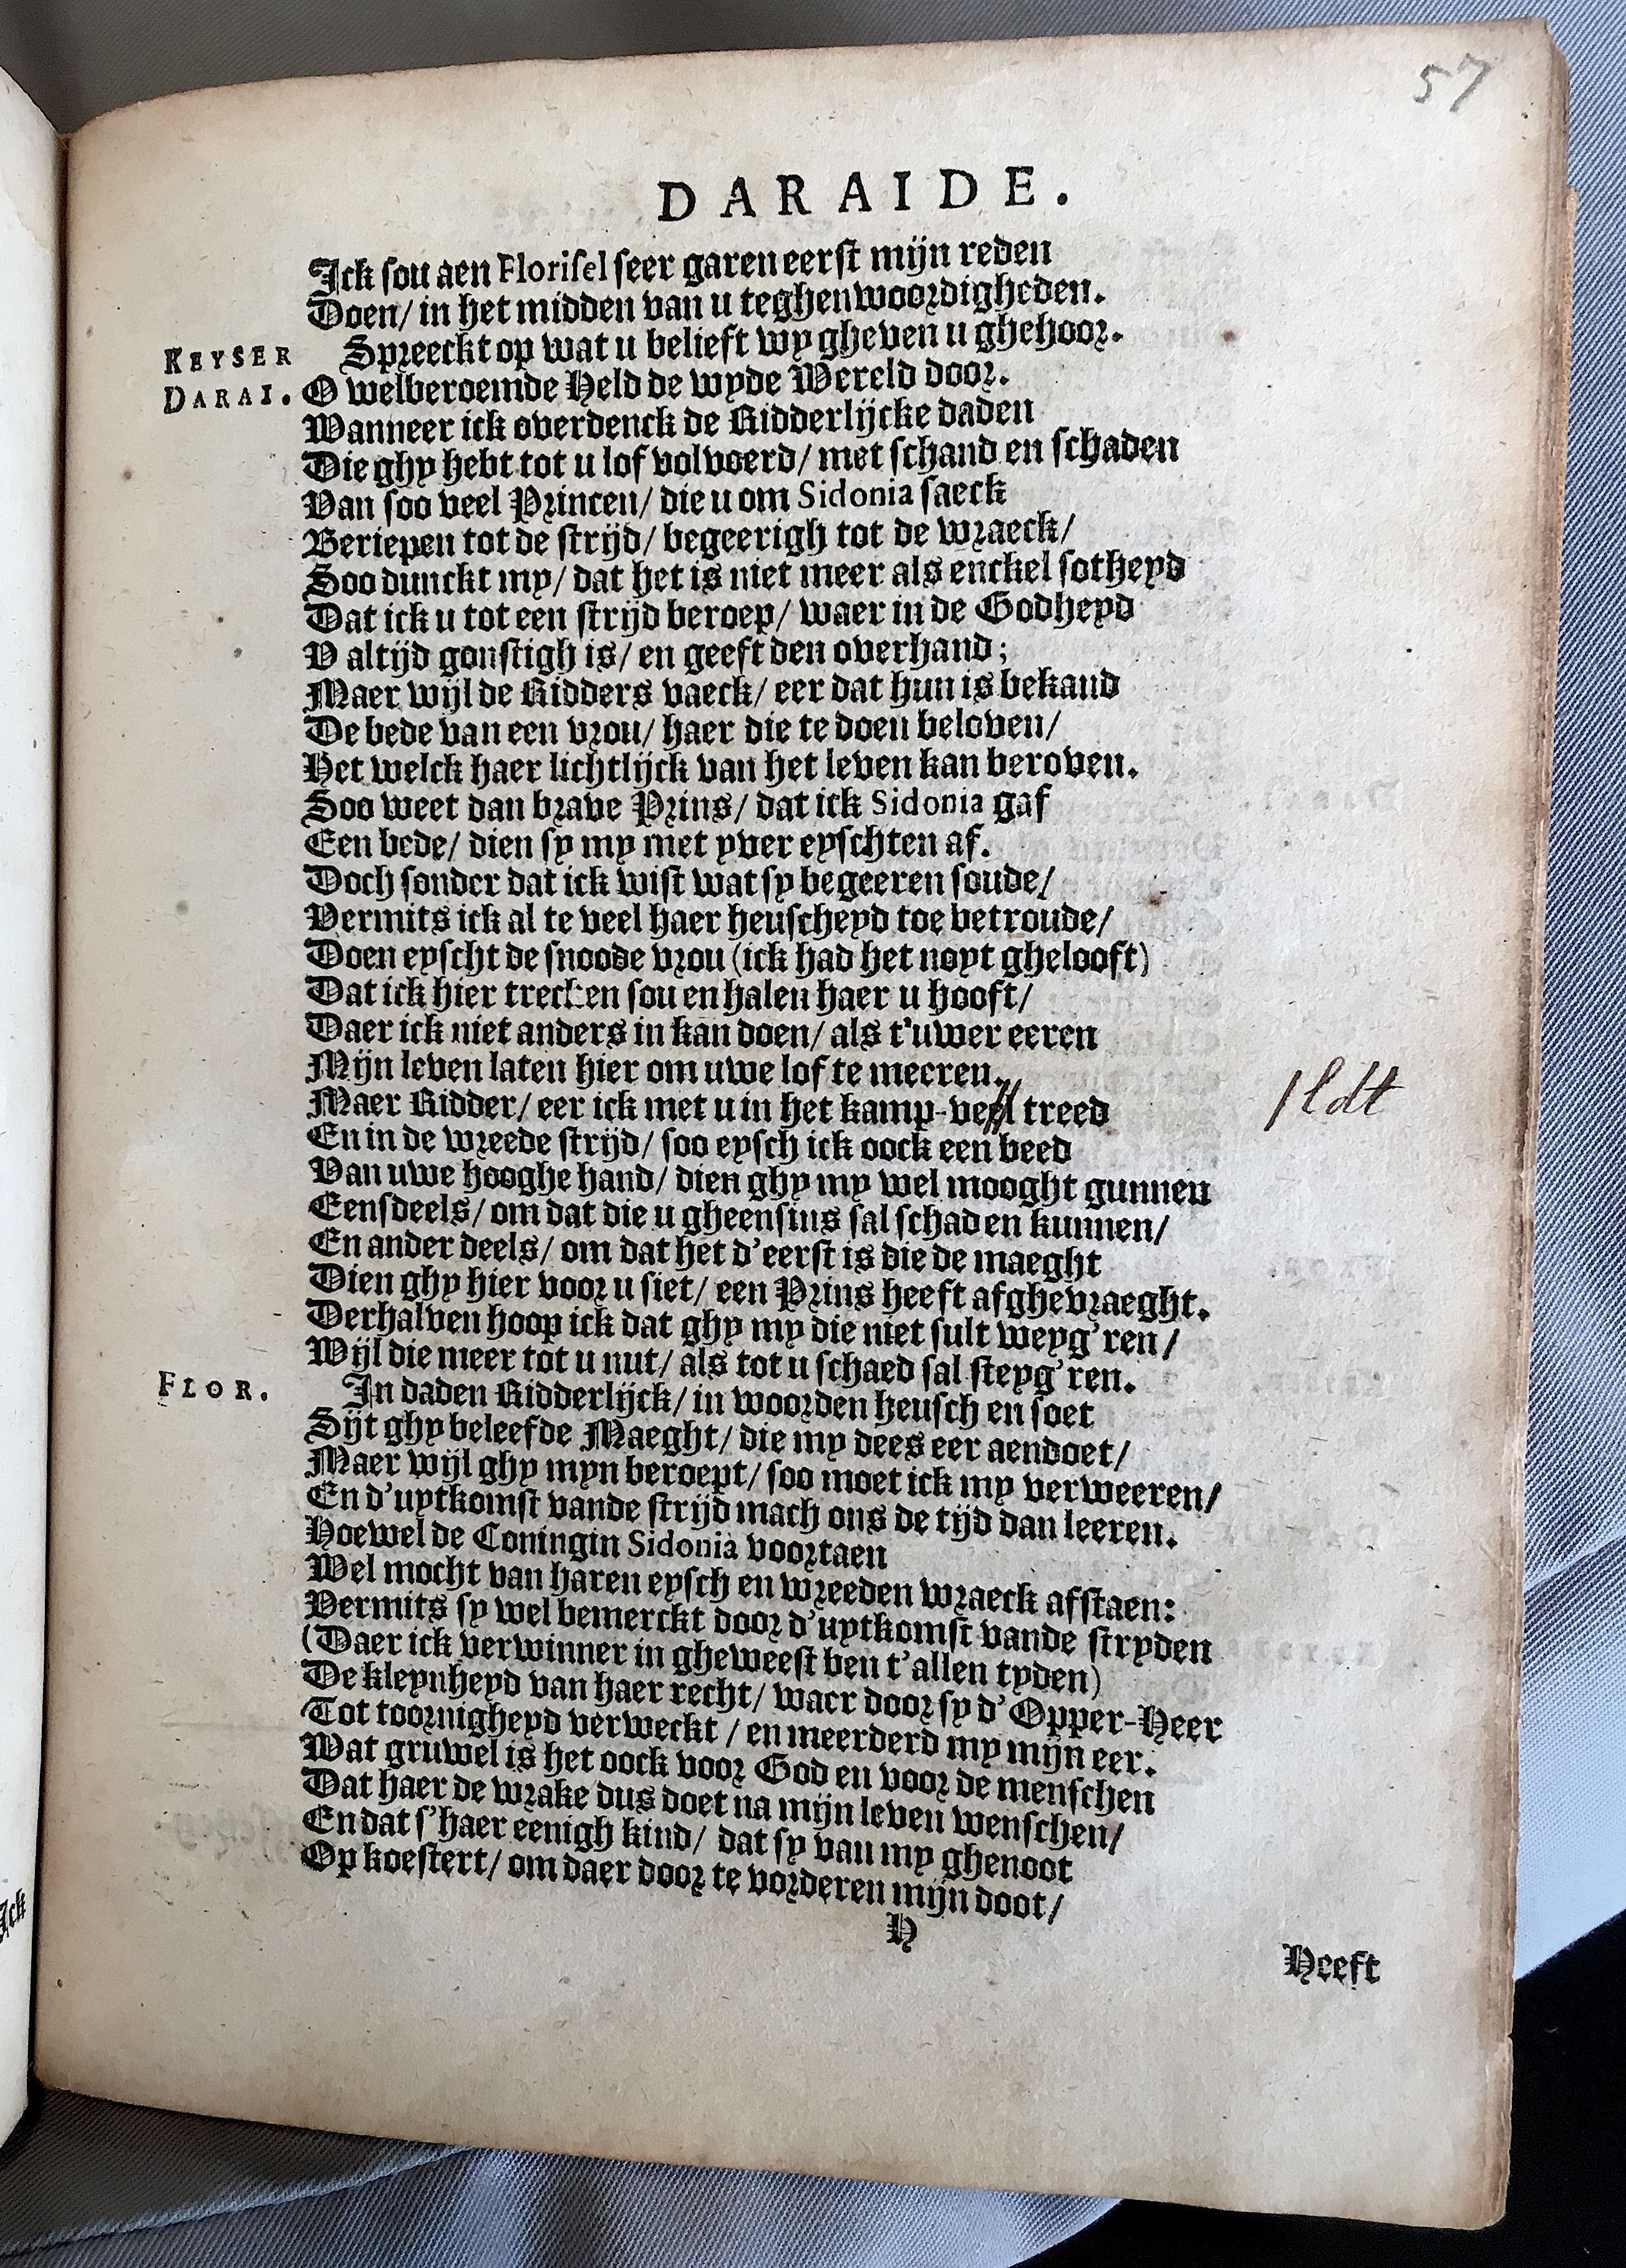 57
DARAIDE.
Ick sou aen Florisel seer garen eerst mijn reden
Doen/ in het midden van u teghenwoordigheden.
KEYSER Spreeckt op wat u belieft wy gheven u ghehoor.
DARAI. O welberoemde Held de wyde Wereld door.
Wanneer ick overdenck de Ridderlijcke daden
Die ghy hebt tot u lof volvoerd/ met schand en schaden
Van soo veel Princen/ die u om Sidonia saeck
Beriepen tot de strijd/ begeerigh tot de wraeck/
Soo dunckt my/ dat het is niet meer als enckel sotheyd
Dat ick u tot een strijd beroep/ waer in de Godheyd
V altijd gonstigh is/ en geeft den overhand;
Maer wijl de Ridders vaeck/ eer dat hun is bekand
De bede van een vrou/ haer die te doen beloven/
Het welck haer lichtlijck van het leven kan beroven.
Soo weet dan brave Prins/ dat ick Sidonia gaf
Een bede/ dien sy my met yver eyschten af.
Doch sonder dat ick wist wat sy begeeren soude/
Vermits ick al te veel haer heuscheyd toe betroude/
Doen eyscht de snoode vrou (ick had het noyt ghelooft)
Dat ick hier trecken sou en halen haer u hooft/
Daer ick niet anders in kan doen/ als t'uwer eeren
Mijn leven laten hier om uwe lof te meeren.
Maer Ridder/ eer ick met u in het kamp-veel treed ldt
En in de wreede strijd/ soo eysch ick oock een beed
Van uwe hooghe hand/ dien ghy my wel mooght gunnen
Eensdeels/ om dat die u gheensins sal schaden kunnen/
En ander deels/ om dat het d'eerst is die de maeght
Dien ghy hier voor u siet/ een Prins heeft afghevraeght.
Derhalven hoop ick dat ghy my die niet sult weyg'ren/
Wijl die meer tot u nut/ als tot u schaed sal steyg'ren.
FLOR. In daden Ridderlijck/ in woorden heusch en soet
Sijt ghy beleefde Maeght/ die my dees eer aendoet/
Maer wijl ghy myn beroept/ soo moet ick my verweeren/
En d'uytkomst vande strijd mach ons de tijd dan leeren.
Hoewel de Coningin Sidonia voortaen
Wel mocht van haren eysch en wreeden wraeck afstaen:
Vermits sy wel bemerckt door d'uytkomst vande stryden
(Daer ick verwinner in gheweest ben t'allen tyden)
De kleynheyd van haer recht/ waer door sy d'Opper-Heer
Tot toornigheyd verweckt/ en meerderd my mijn eer.
Wat gruwel is het oock voor God en voor de menschen
Dat haer de wrake dus doet na mijn leven wenschen/
En dat s'haer eenigh kind/ dat sy van my ghenoot
Op koestert/ om daer door te vorderen mijn doot/
H
Heeft
Ick